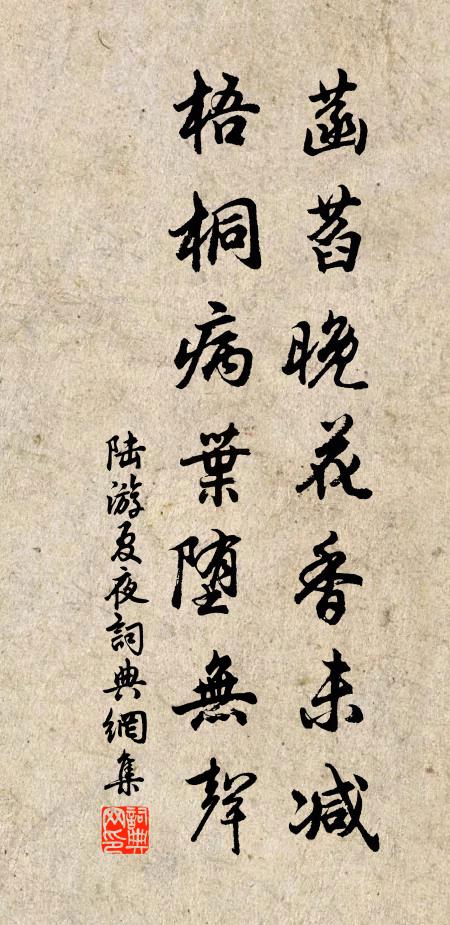 菡萏晚花香未减
梧桐病葉堕無聲
陆游夏夜詞典網集
詞典网印